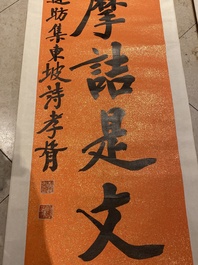 摩詰是文
昉集東坡詩孝胥